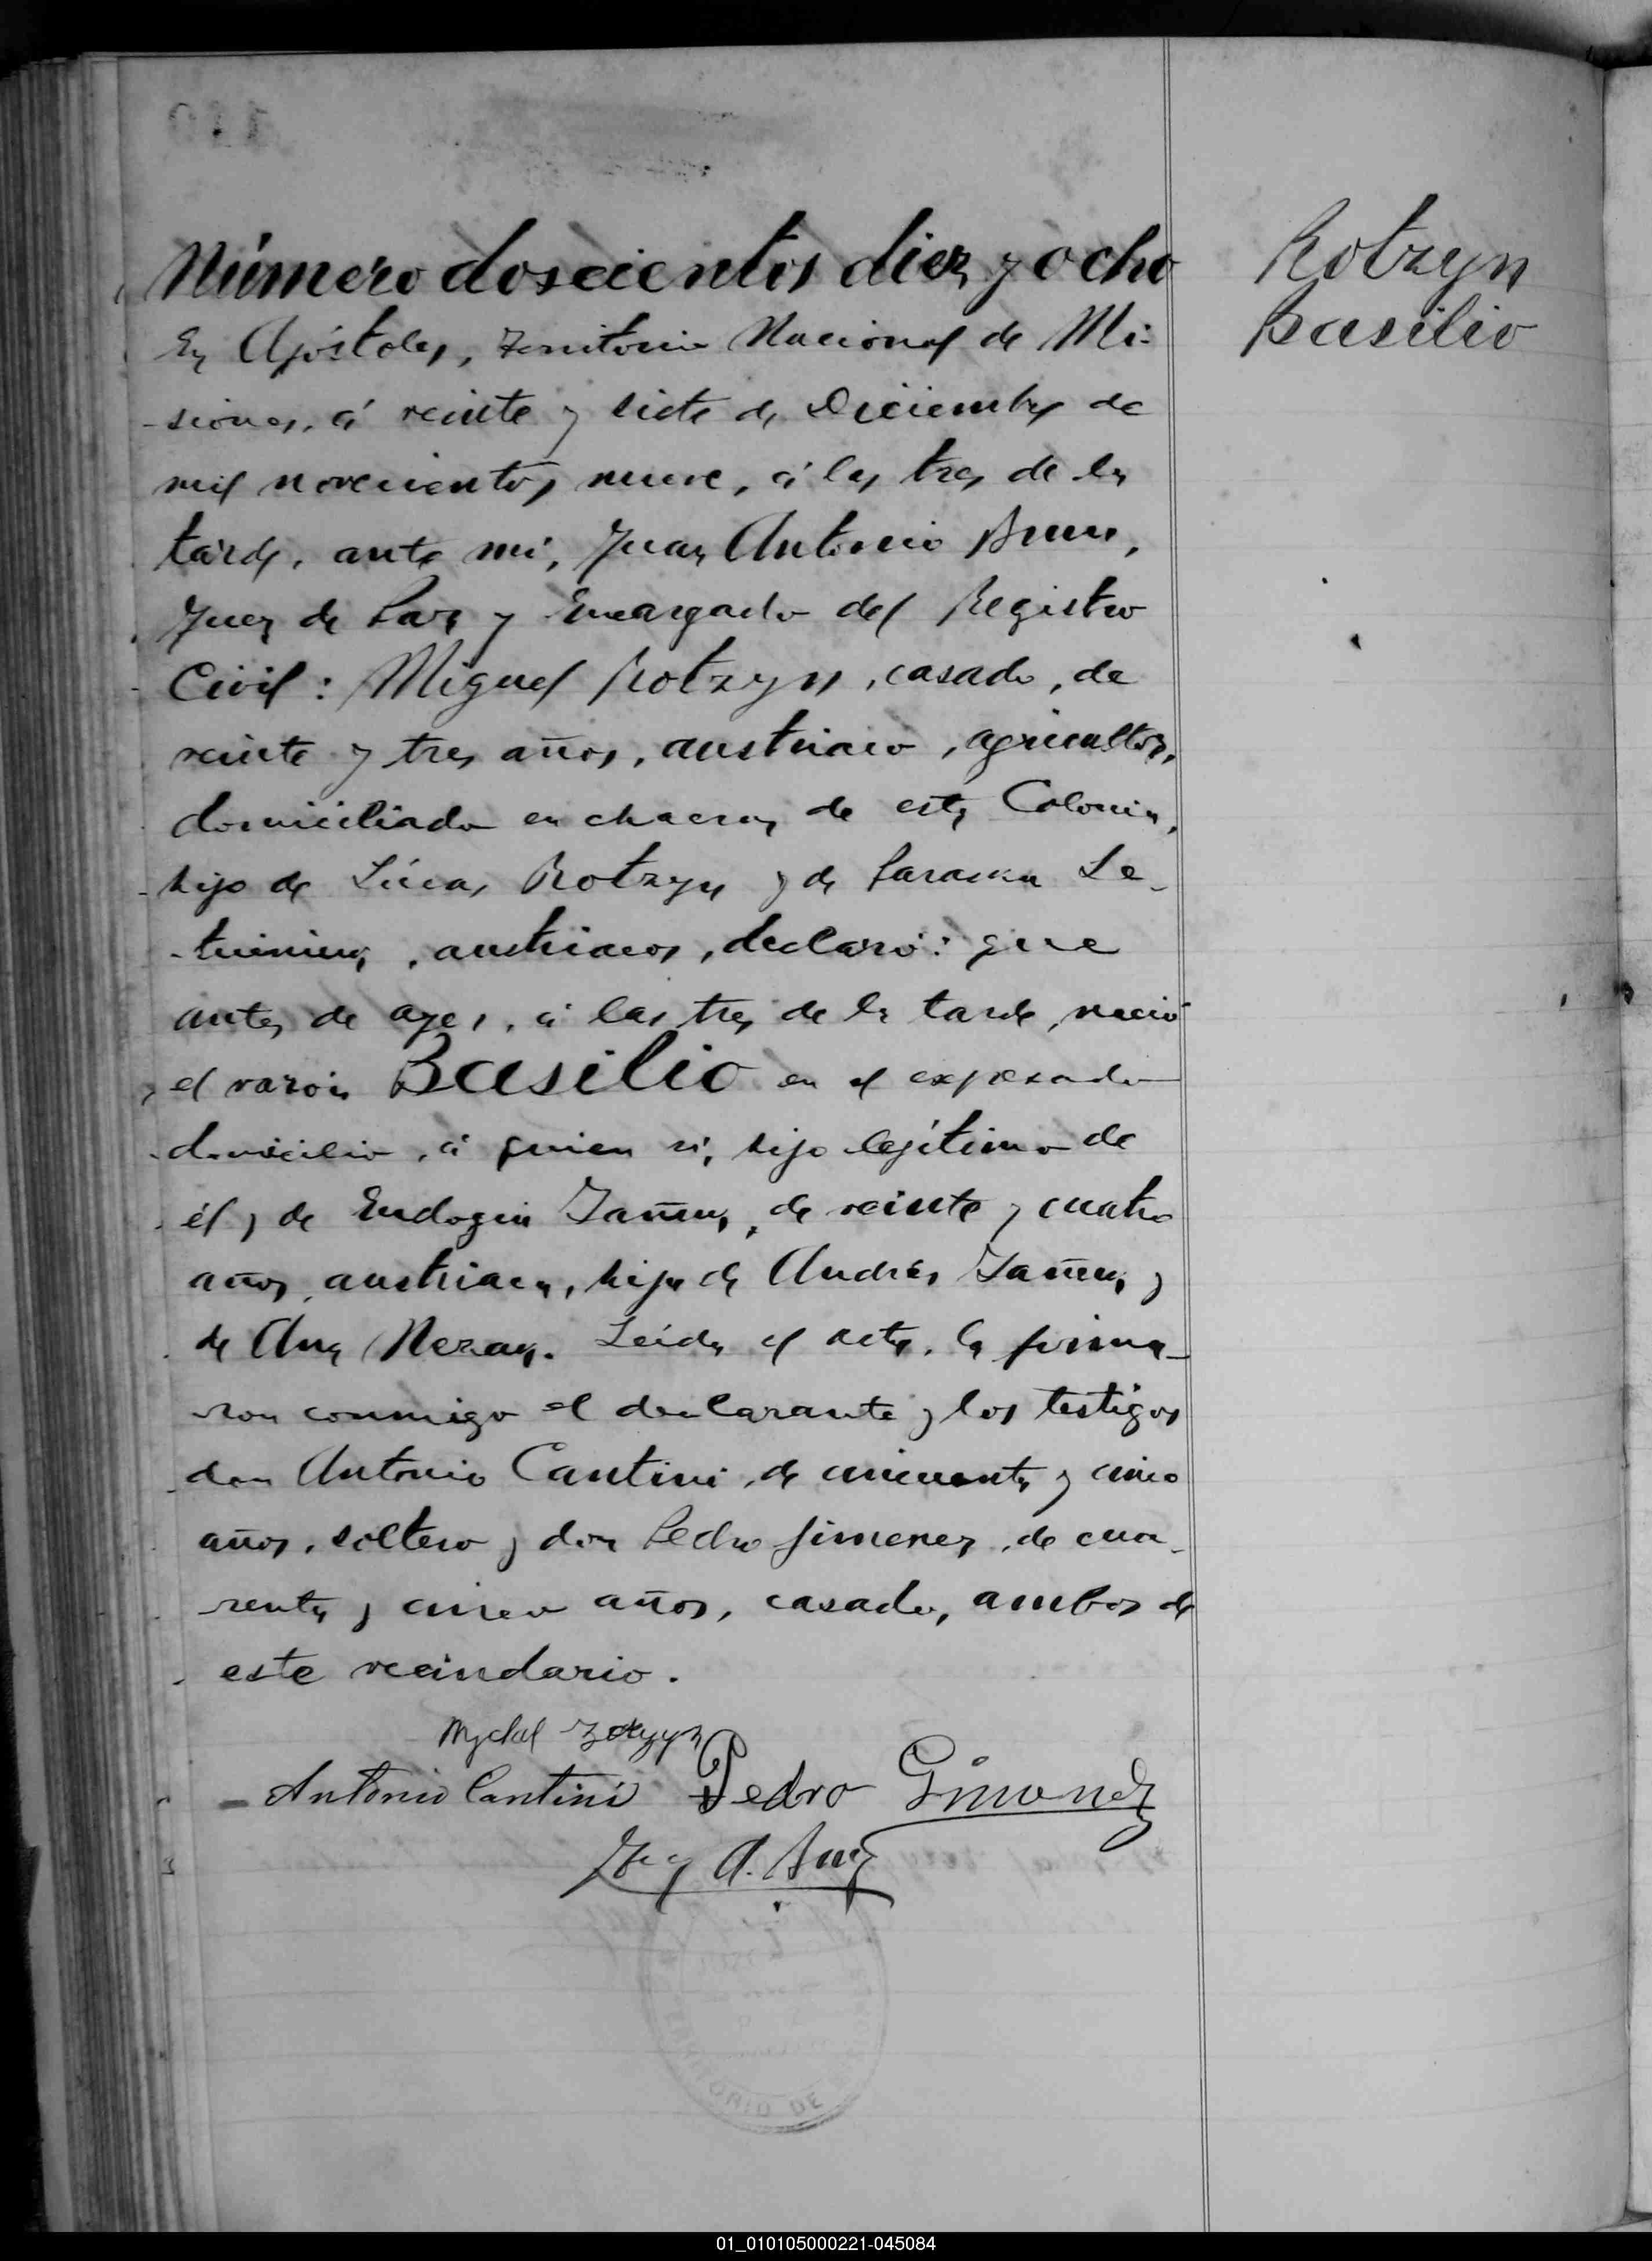 Número doscientos diez y ocho
Rotzyn
Basilio
En Apóstoles, Territorio Nacional de Mi-
-siones, á veinte y siete de Diciembre de
mil novecientos nueve, á las tres de la
tarde, ante mi, Juan Antonio
Juez de Paz y Encargado del Registro
Civil: Miguel Rotzyn, casado, de
veinte y tres años, austriaco, agricultor,
domiciliado en chacra de esta Colonia,
hijo de Lúcas Rotzyn y de
austriacos, declaró: que
antes de ayer, á las tres de la tarde, nació
el varón Basilio en el expresado
domicilio, á quien vi, hijo legítimo de
él y de Eudogia de veinte y cuatro
años, austriaca, hija de Andrés y
de Ana Leída el acta, la firma-
-ron conmigo el declarante y los testigos
don Antonio Cantini, de cincuenta y cinco
años, soltero y don Pedro Jimenez, de cua-
renta y cinco años, casado, ambos de
este vecindario.
Antonio Cantini Pedro Gimenez
01_010105000221-045084